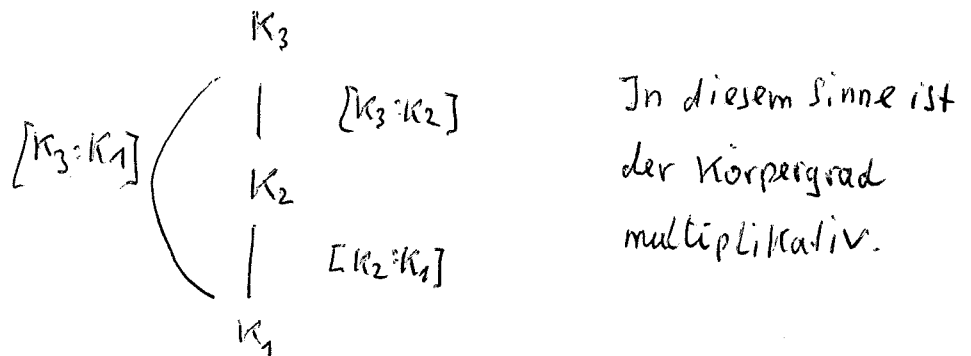 K₃
[K₃:K₂]
[K₃:K₁]
K₂
[K₂:K₁]
K₁
In diesem Sinne ist
der Körpergrad
multiplikativ.